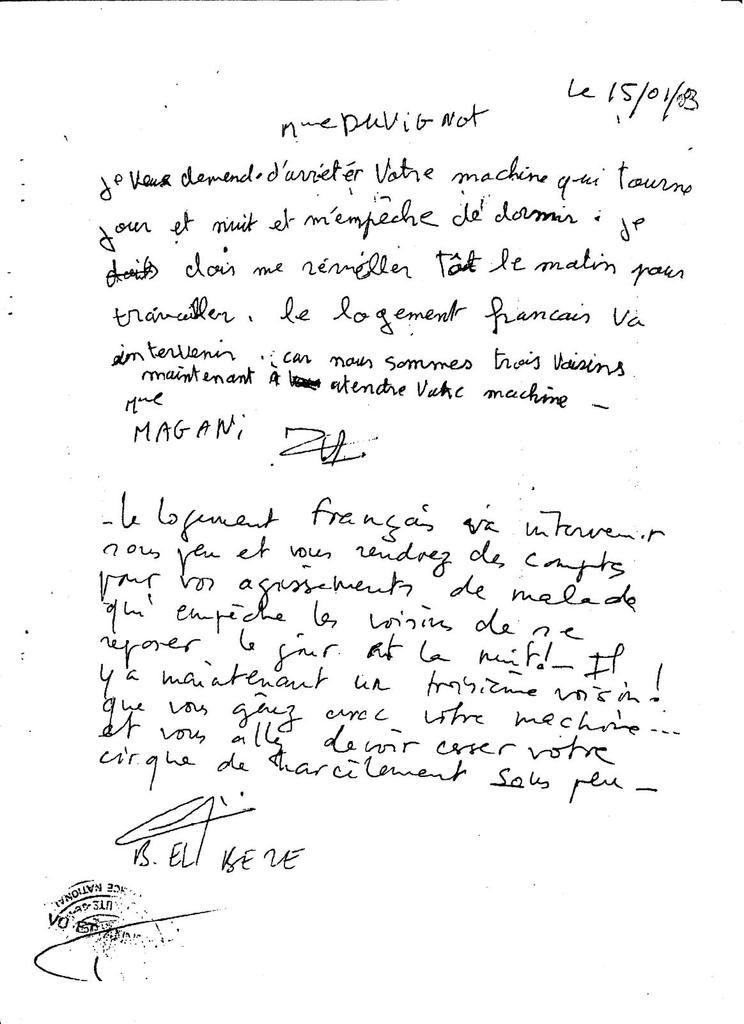 Le 15/01/03
Mme DUVIGNOT
je veux demende d'arrétér Votre machine qui tourne
jour et nuit et m'empêche dé dormir. je
dois dois me réveiller tôt le matin pour
travailler. le logement francais va
intervenir. car nous sommes trois voisins
maintenant A atendre Votre machine _
Mme
MAGANi
- le logement français va intervenir
sous peu et vous rendrez des compts
pour vos agissements de malade
qui empêche les voisins de se
reposer le jour et la nuit! _ Il
y a maintenant un troisième voisin!
que vous gênez avec votre machine...
et vous allez devoir cesser votre
cirque de harcèlement sous peu _
B. EL BEZE